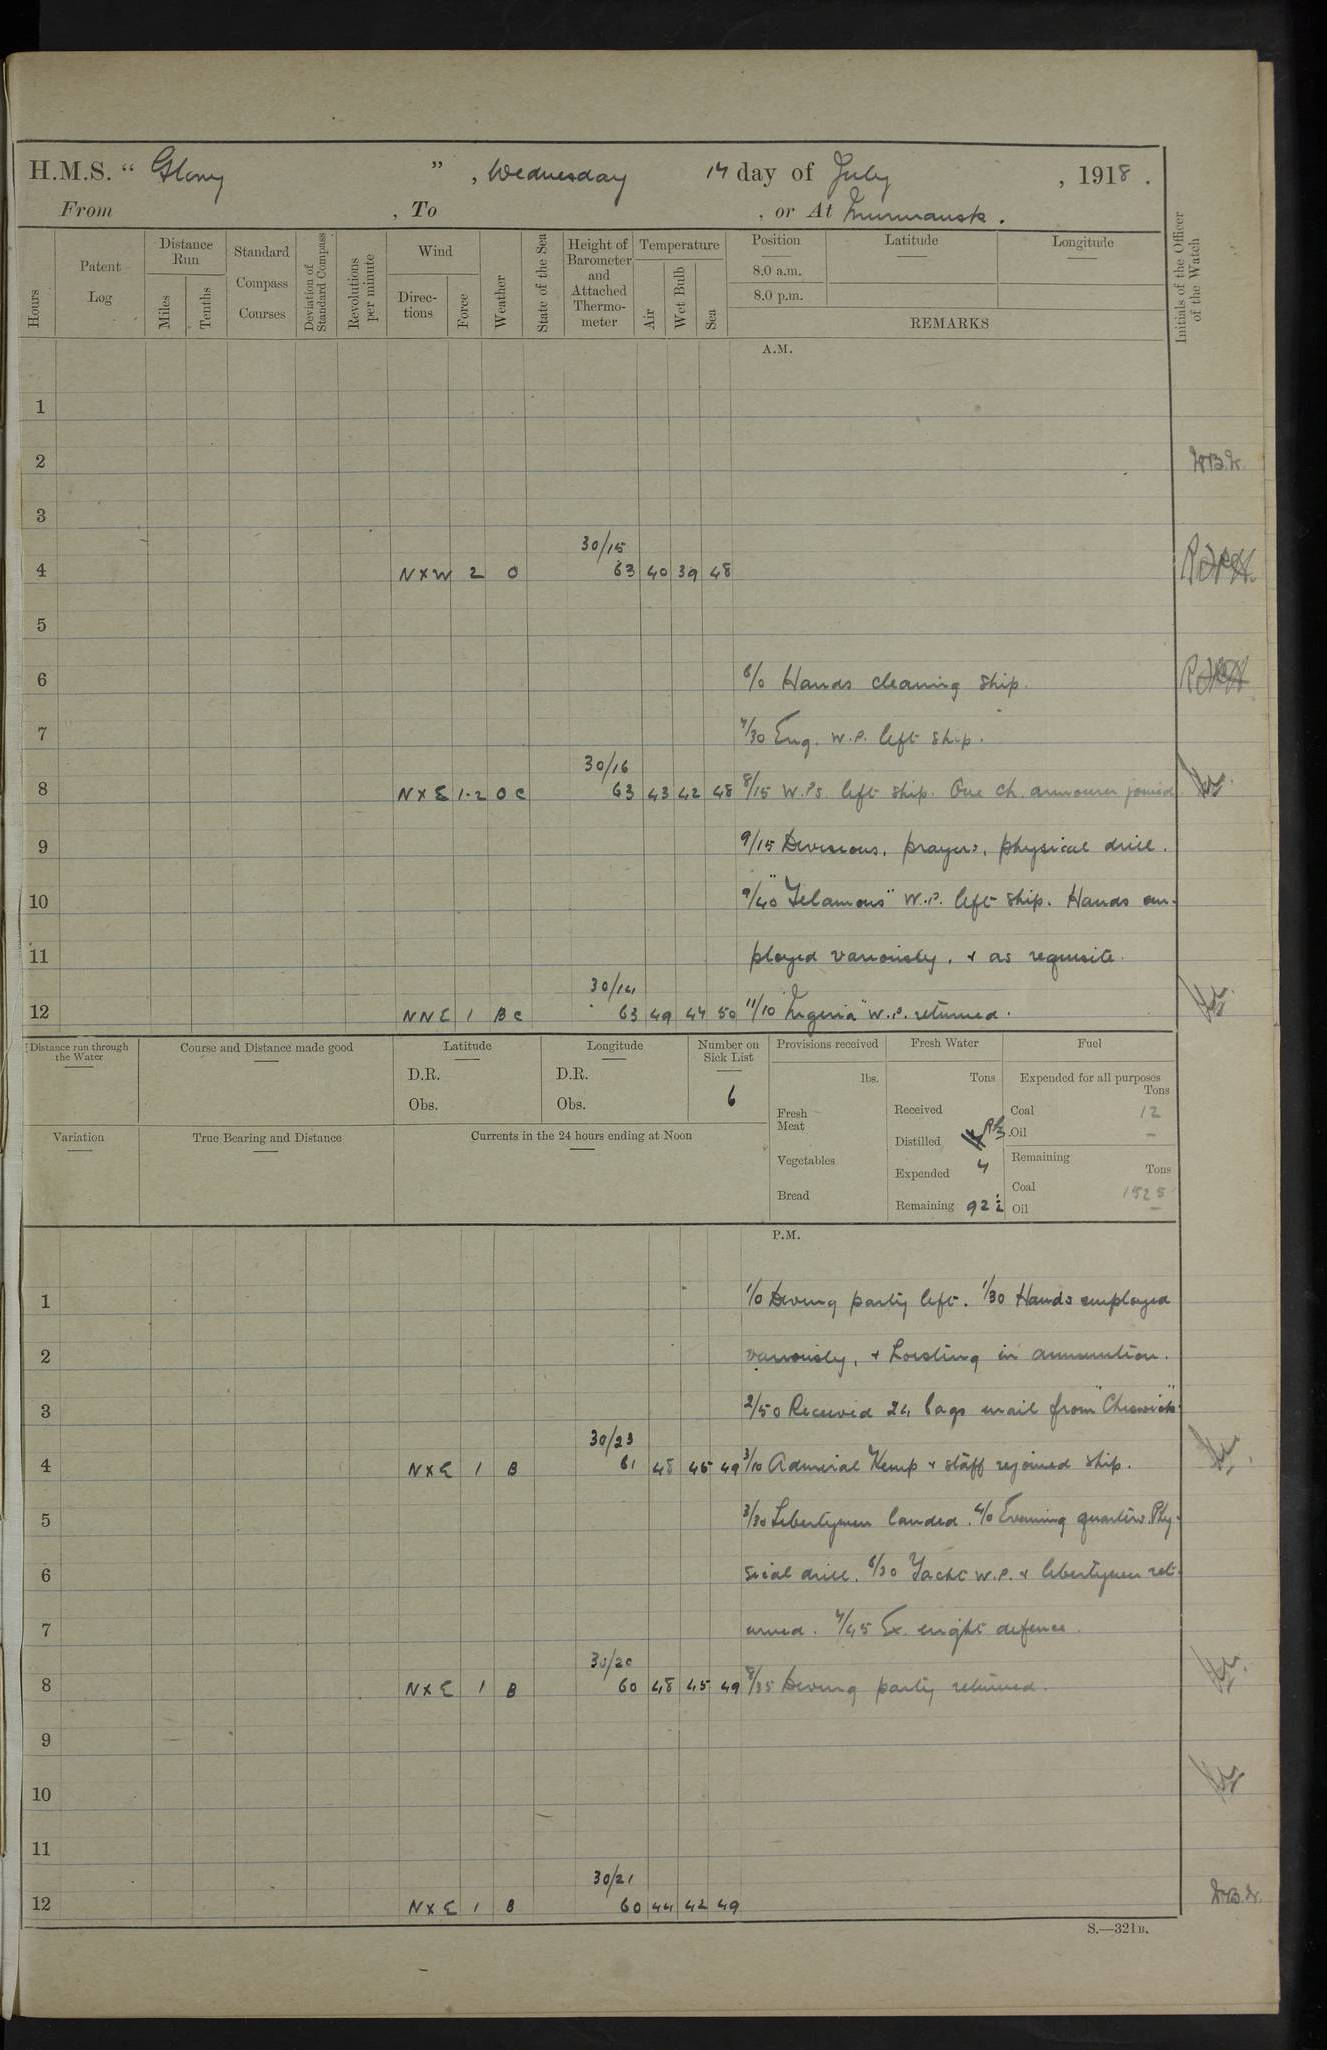 H.M.S. " Glory ", Wednesday 17 day of July, 1918.
From , To , or At Murmansk.
Hours
Patent Log
Distance Run
Miles
Tenths
Standard Compass Courses
Deviation of Standard Compass
Revolutions per minute
Wind
Directions
Force
Weather
State of the Sea
Height of Barometer and Attached Thermometer
Temperature
Air
Wet Bulb
Sea
Position
8.0 a.m.
8.0 p.m.
Latitude
Longitude
REMARKS
Initials of the Officer of the Watch
A.M.
1
2
3
30/15
4 NXW 2 O 63 40 39 48
5
6 6/0 Hands cleaning ship.
7 7/30 Eng. W.P. left ship.
30/16
8 NXE 1-2 O C 63 43 42 48 8/15 W.Ps. left ship. One ch. armourer joined
9 9/15 Divisions, prayers, physical drill.
10 9/40 "Telamons" W.P. left ship. Hands em-
11 ployed variously, & as requisite.
30/14
12 NNE 1 BC 63 49 44 50 11/10 W.P. returned.
Distance run through the Water
Course and Distance made good
Latitude
D.R.
Obs.
Longitude
D.R.
Obs.
Number on Sick List
6
Provisions received
lbs.
Fresh Meat
Vegetables
Bread
Fresh Water
Tons
Received
Distilled
Expended 4
Remaining 92½
Fuel
Expended for all purposes
Tons
Coal 12
Oil –
Remaining
Tons
Coal 1525
Oil –
Variation
True Bearing and Distance
Currents in the 24 hours ending at Noon
P.M.
1 1/0 Diving party left. 1/30 Hands employed
2 variously, & hoisting in ammunition.
3 2/50 Received 24 bags mail from "Cheswick"
30/23
4 NXE 1 B 61 48 45 49 3/10 Admiral Kemp & staff rejoined ship.
5 3/30 Libertymen landed. 4/0 Evening quarters. Phy-
6 sical drill. 6/30 Yacht W.P. & libertymen ret-
7 urned. 7/45 Ex. night defence.
30/20
8 NXE 1 B 60 48 45 49 8/35 Diving party returned.
9
10
11
30/21
12 NXE 1 B 60 44 42 49
S.—321B.